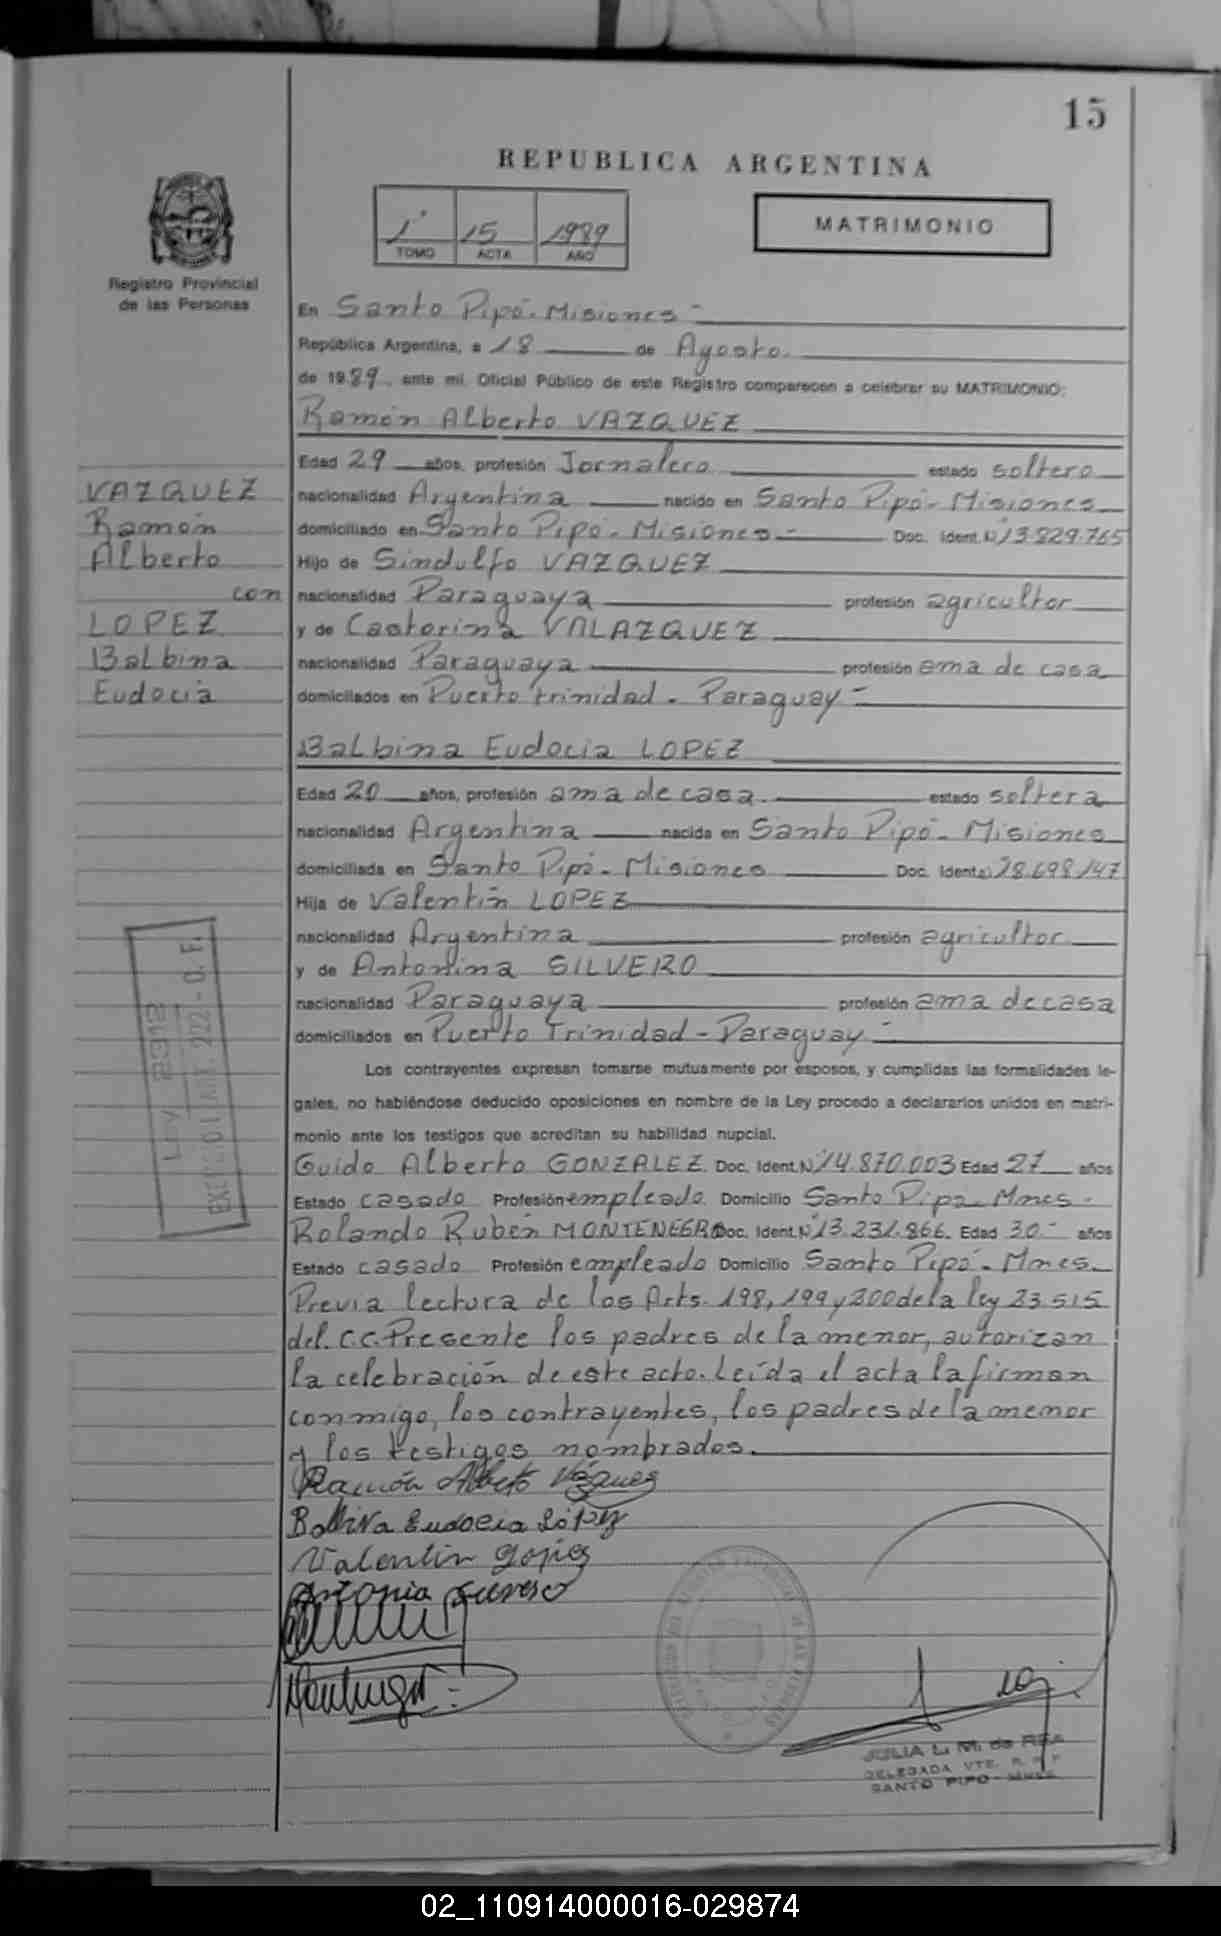 15
REPUBLICA ARGENTINA
1° 15 1989
TOMO ACTA AÑO
MATRIMONIO
Registro Provincial
de las Personas
En Santo Pipó - Misiones -
República Argentina, a 18 de Agosto.
de 1989, ante mí, Oficial Público de este Registro comparecen a celebrar su MATRIMONIO:
Ramón Alberto VAZQUEZ
Edad 29 años, profesión Jornalero estado soltero
nacionalidad Argentina nacido en Santo Pipó - Misiones
domiciliado en Santo Pipó - Misiones - Doc. Ident. Nº 13.829.765
Hijo de Sindulfo VAZQUEZ
nacionalidad Paraguaya profesión agricultor
y de Castorina VALAZQUEZ
nacionalidad Paraguaya profesión ama de casa
domiciliados en Puerto trinidad - Paraguay -
Balbina Eudocia LOPEZ
Edad 20 años, profesión ama de casa. estado soltera
nacionalidad Argentina nacida en Santo Pipó - Misiones
domiciliada en Santo Pipó - Misiones Doc. Ident. 28.698.147
Hija de Valentín LOPEZ
nacionalidad Argentina profesión agricultor
y de Antonina SILVERO
nacionalidad Paraguaya profesión ama de casa
domiciliados en Puerto Trinidad - Paraguay -
Los contrayentes expresan tomarse mutuamente por esposos, y cumplidas las formalidades le-
gales, no habiéndose deducido oposiciones en nombre de la Ley procedo a declararlos unidos en matri-
monio ante los testigos que acreditan su habilidad nupcial.
Guido Alberto GONZALEZ. Doc. Ident. Nº 14.870.003 Edad 27 años
Estado casado Profesión empleado. Domicilio Santo Pipó - Mnes -
Rolando Rubén MONTENEGRO Doc. Ident. Nº 13.231.866. Edad 30.- años
Estado casado Profesión empleado Domicilio Santo Pipó - Mnes.
Previa lectura de los Arts. 198, 199 y 200 de la ley 23.515
del C.C. Presente los padres de la menor, autorizan
la celebración de este acto. Leída el acta la firman
conmigo, los contrayentes, los padres de la menor
y los testigos nombrados.
VAZQUEZ
Ramón
Alberto
con
LOPEZ
Balbina
Eudocia
LEY 2312
Ramón Alberto Vázquez
Balbina Eudocia López
Valentin Lopez
Antonia
JULIA L. M. de REA
DELEGADA VTE. R. P. P
SANTO PIPO - MNES
02_110914000016-029874